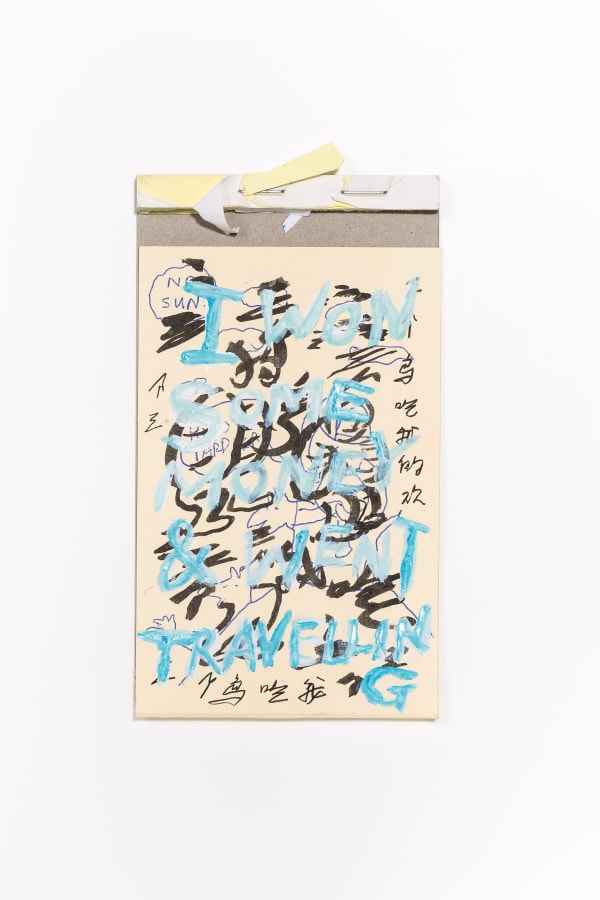 NO
SUN
I WON
SOME
MONEY
& WENT
TRAVELLIN
G
鸟吃我的
鸟吃我